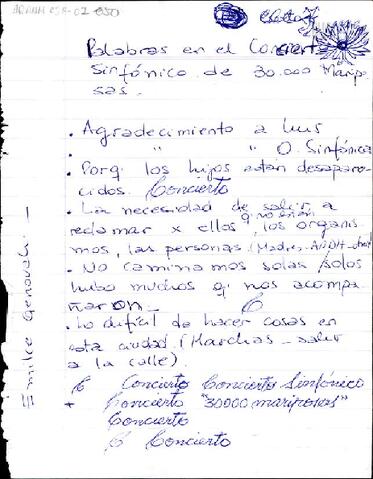 Palabras en el Concierto
Sinfónico de 30.000 Maripo
sas.
. Agradecimiento a Luis
. " " O. Sinfónica
. Porq. los hijos están desapare
cidos. Concierto
. La necesidad de salir a
q' no eran
reclamar x ellos, los organis
mos, las personas (Madres, APDH
. No caminamos solas/solos
hubo muchos q' nos acompa
ñaron_ C
. Lo difícil de hacer cosas en
esta ciudad. (Marchas_ salir
a la calle).
C Concierto Concierto Sinfónico
+ Concierto "30000 mariposas"
Concierto
C Concierto
Emilce